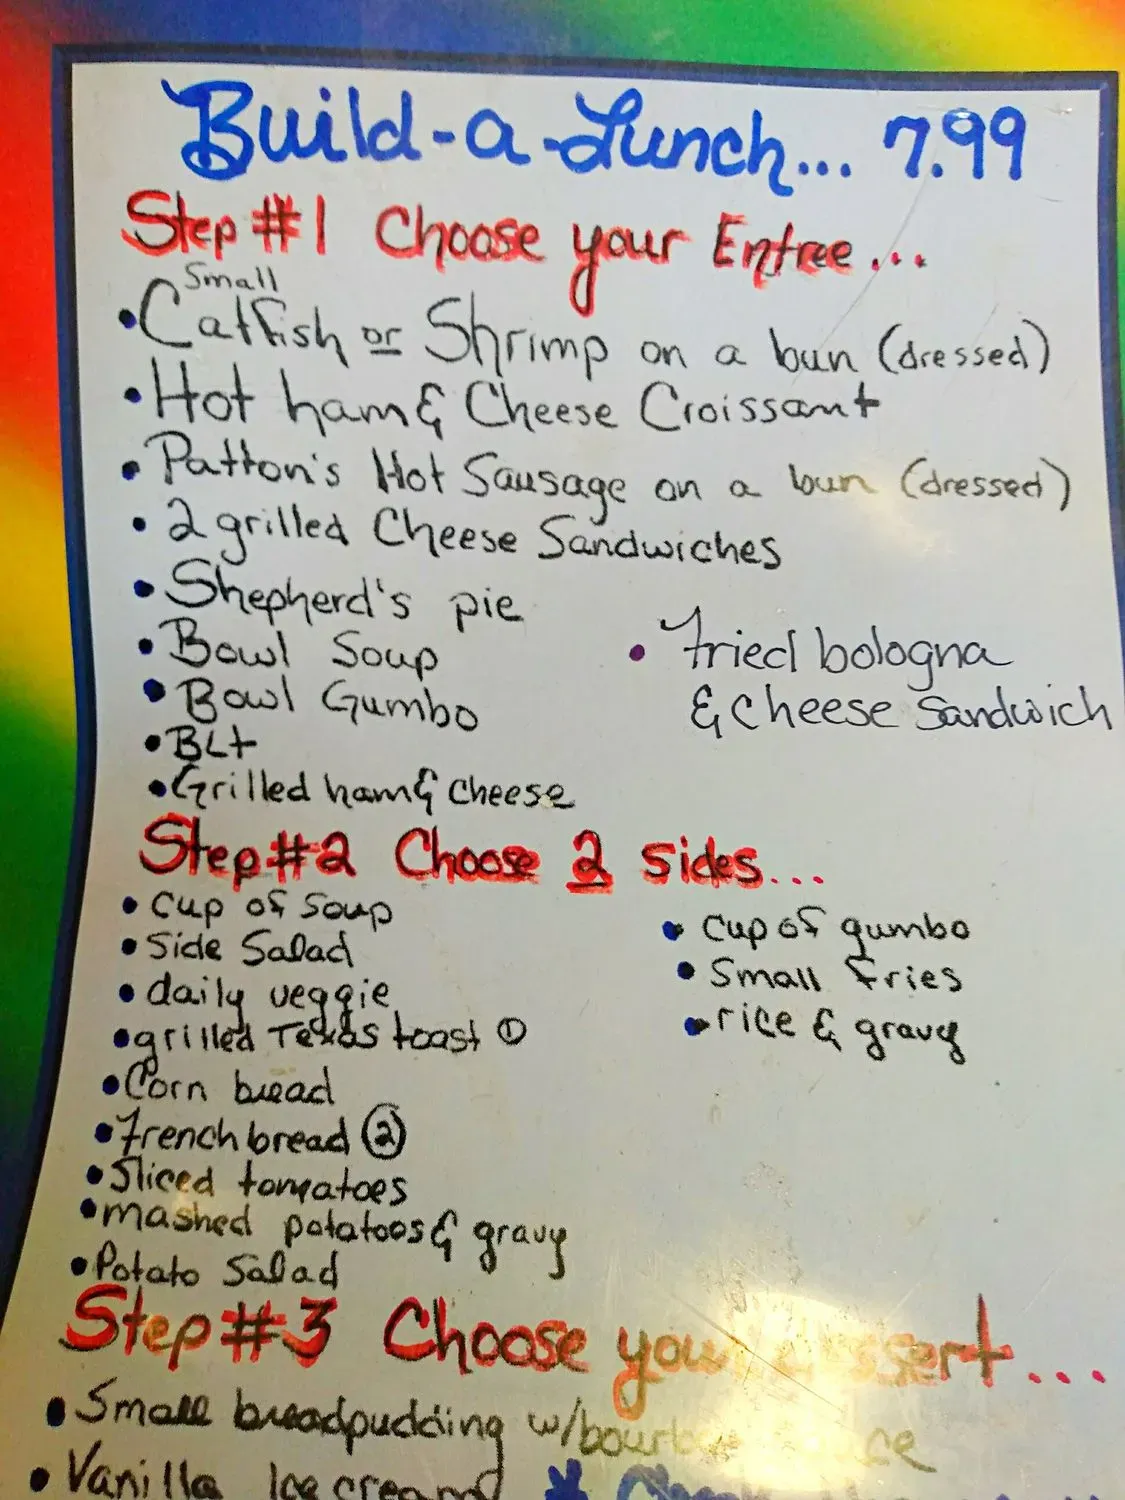 Build-a-Lunch... 7.99
Step #1 Choose your Entree...
Small
• Catfish or Shrimp on a bun (dressed)
• Hot ham & Cheese Croissant
• Patton's Hot Sausage on a bun (dressed)
• 2 grilled Cheese Sandwiches
• Shepherd's pie
• Bowl Soup
• Bowl Gumbo
• BLt
• Grilled ham & cheese
• Fried bologna
& cheese Sandwich
Step #2 Choose 2 sides...
• cup of soup
• Side Salad
• daily veggie
• grilled Texas toast ①
• Corn bread
• French bread ②
• Sliced tomatoes
• mashed potatoos & gravy
• Potato Salad
• cup of gumbo
• Small fries
• rice & gravy
Step #3 Choose your dessert...
• Small breadpudding w/bourbon
• Vanilla Ice cream *